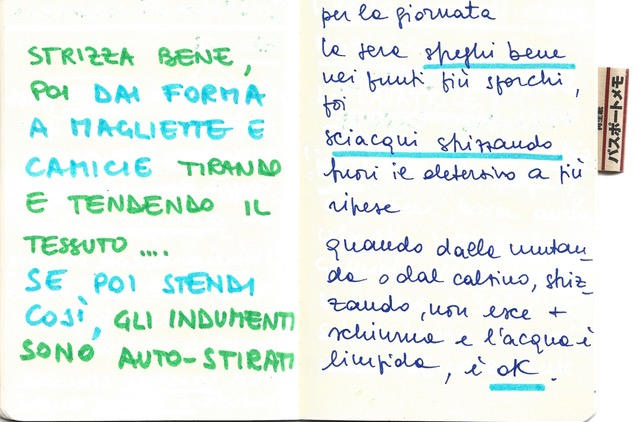 STRIZZA BENE,
POI DAI FORMA
A MAGLIETTE E
CAMICIE TIRANDO
E TENDENDO IL
TESSUTO ....
SE POI STENDI
COSÌ, GLI INDUMENTI
SONO AUTO-STIRATI
per la giornata
la sera sfreghi bene
nei punti più sporchi,
poi
sciacqui strizzando
fuori il detersivo a più
riprese
quando dalla mutan_
da o dal calzino, striz_
zando, non esce +
schiuma e l'acqua è
limpida, è OK.
パスポートメモ